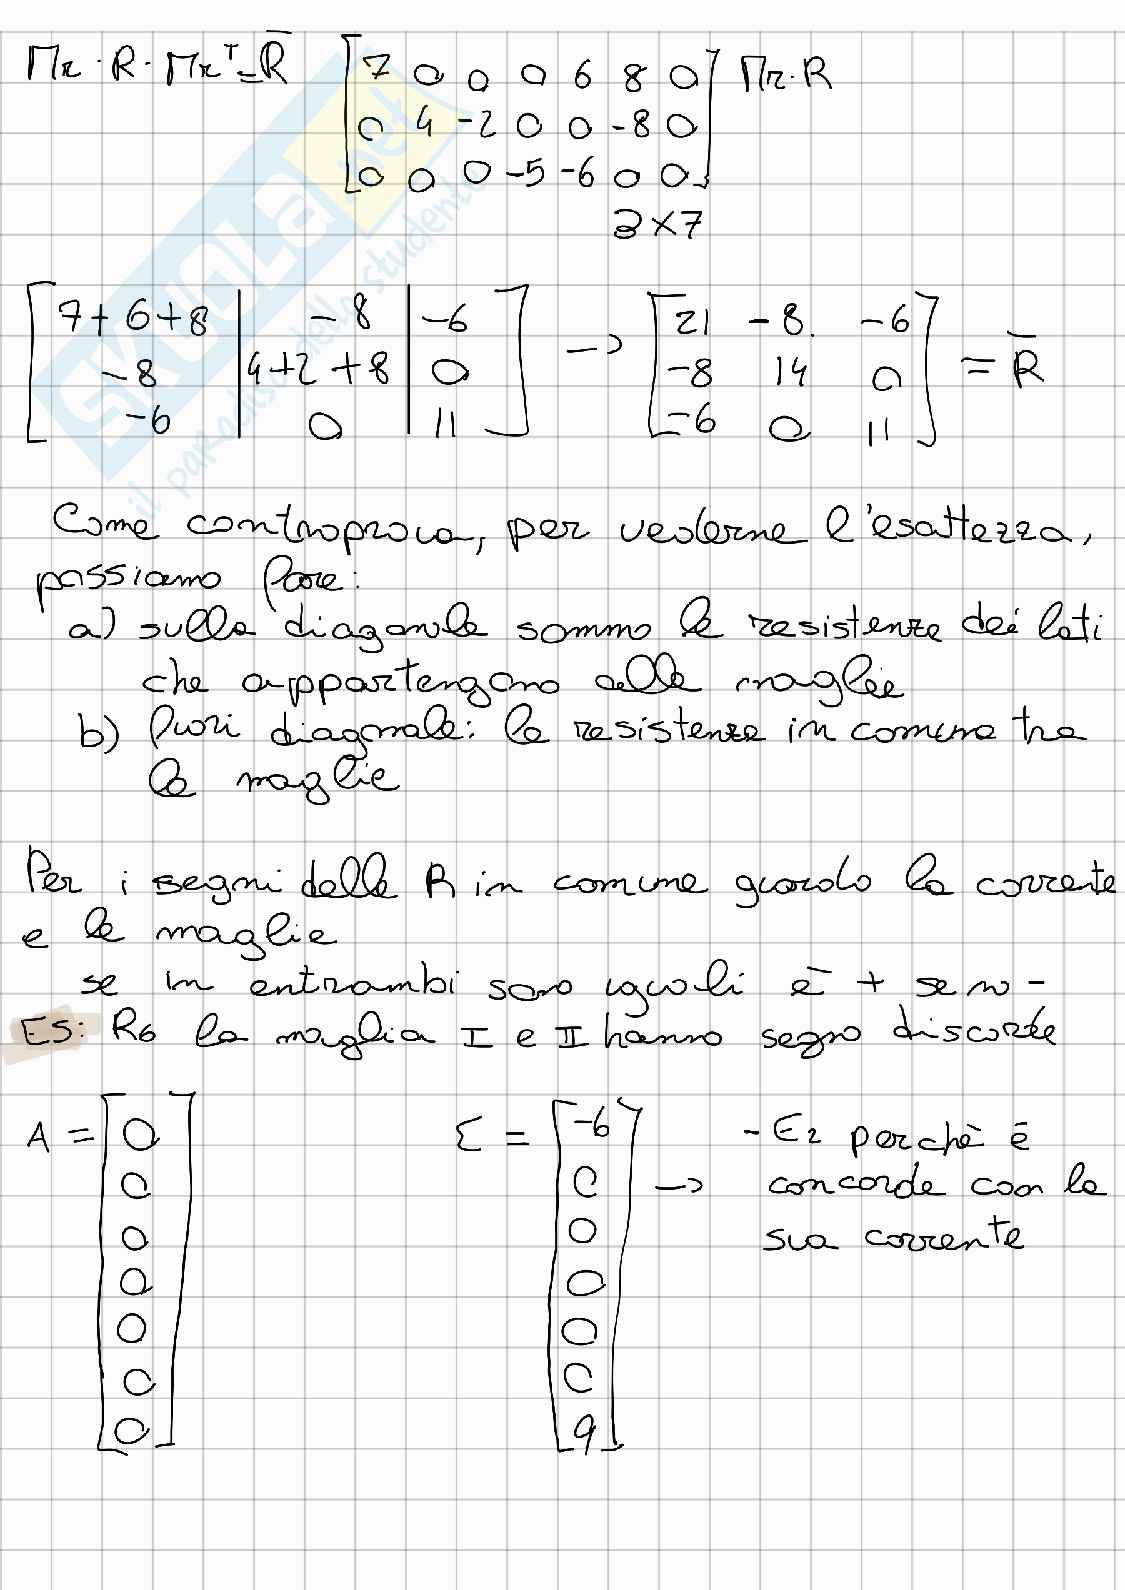 Mr · R · Mrᵀ = R̄ [7 0 0 0 6 8 0] Mr · R
[0 4 -2 0 0 -8 0]
[0 0 0 -5 -6 0 0]
3x7
[7+6+8 | -8 | -6] → [21 -8 -6]
[-8 | 4+2+8 | 0] [-8 14 0] = R̄
[-6 | 0 | 11] [-6 0 11]
Come controprova, per vederne l'esattezza,
possiamo fare:
a) sulla diagonale sommo le resistenze dei lati
che appartengono alle maglie
b) fuori diagonale: le resistenze in comune tra
le maglie
Per i segni delle R in comune guardo la corrente
e le maglie
se in entrambi sono uguali è + se no -
ES: R6 la maglia I e II hanno segno discorde
A = [0 0 0 0 0 0 0] E = [-6 0 0 0 0 0 9] → - E2 perchè è
concorde con la
sua corrente
SKUOLA.net
il paradiso dello studente